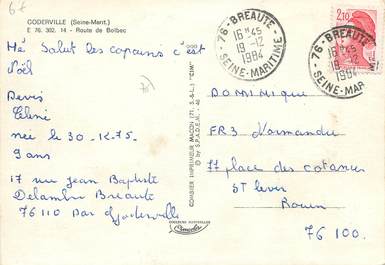 GODERVILLE (Seine-Marit.)
E 76. 302. 14 - Route de Bolbec
Hé Salut les copains c'est
Noël
Denis
Céline
née le 30-12-75
9 ans
17 rue jean Baptiste
Delambre Breaute
76110 Bar Goderville
COMBIER IMPRIMEUR MACON (71. S.-&-L.) "CIM"
© by S.P.A.D.E.M. - 46
76 - BREAUTE -
16 H 45
19-12
1984
SEINE-MARITIME
76 - BREAUTE
16 H 45
19-12
1984
SEINE-MAR
2,10
DOMINIQUE
FR3 Normandie
77 place des cotances
ST Sever
Rouen
76 100.